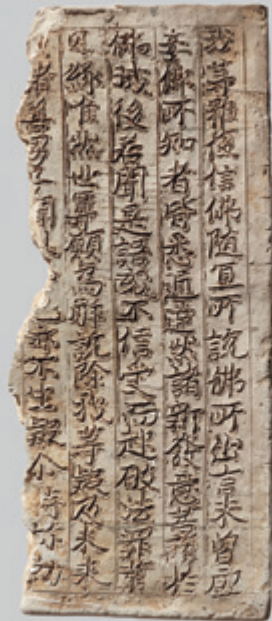 我等雖復信佛隨宜所說佛所出言未曾虛
妄佛所知者皆悉通達然諸新發意菩薩於
佛滅後若聞是語或不信受而起破法罪業
因緣唯然世尊願為解說除我等疑及未來
諸善男子聞已亦不生疑尒時弥勒